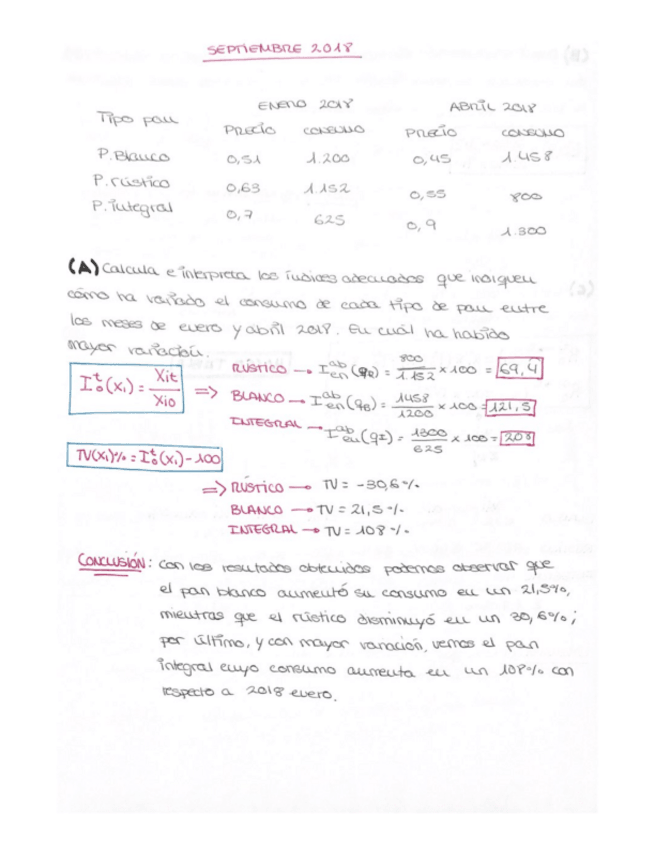 SEPTIEMBRE 2018
Tipo pan ENERO 2018 ABRIL 2018
PRECIO CONSUMO PRECIO CONSUMO
P. Blanco 0,51 1.200 0,45 1.458
P. rústico 0,63 1.152 0,55 800
P. integral 0,7 625 0,9 1.300
(A) Calcula e interpreta los índices adecuados que indiquen
cómo ha variado el consumo de cada tipo de pan entre
los meses de enero y abril 2018. En cuál ha habido
mayor variación.
I₀ᵗ(xᵢ) = Xit / Xio =>
RÚSTICO → I en ab (qR) = 800/1.152 x 100 = 69,4
BLANCO → I en ab (qB) = 1458/1200 x 100 = 121,5
INTEGRAL → I en ab (qI) = 1300/625 x 100 = 208
TV(xᵢ)% = I₀ᵗ(xᵢ) - 100
=> RÚSTICO → TV = -30,6%
BLANCO → TV = 21,5%
INTEGRAL → TV = 108%
CONCLUSIÓN: con los resultados obtenidos podemos observar que
el pan blanco aumentó su consumo en un 21,5%,
mientras que el rústico disminuyó en un 30,6%;
por último, y con mayor variación, vemos el pan
integral cuyo consumo aumenta en un 108% con
respecto a 2018 enero.